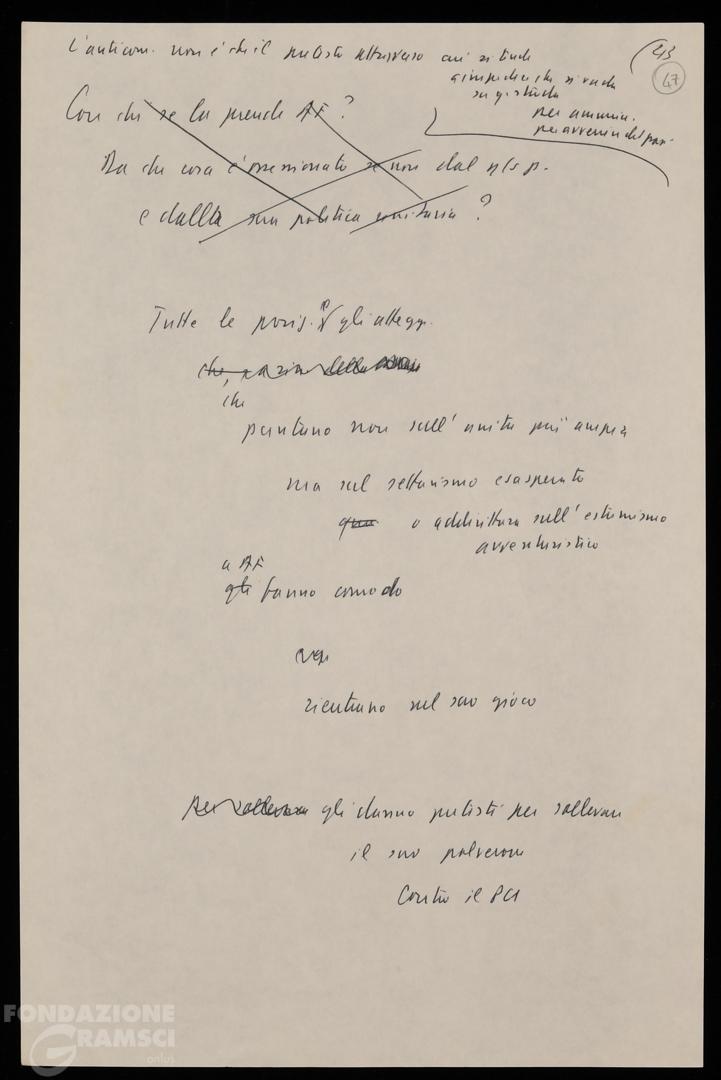 L'anticom. non è che il pretesto attraverso cui si tende
a impedire che si vada
su questa strada
per ammin.
per avvenire del paese
43
47
Con chi se la prende AF?
Da che cosa è ossessionato se non dal n/s p.
e dalla sua politica unitaria?
Tutte le posiz. gli attegg.
che
puntano non sull'unità più ampia
ma sul settarismo esasperato
o addirittura sull'estremismo
avventuristico
a AF
gli fanno comodo
rientrano nel suo gioco
gli danno pretesti per sollevare
il suo polverone
Contro il PCI
FONDAZIONE
GRAMSCI
onlus